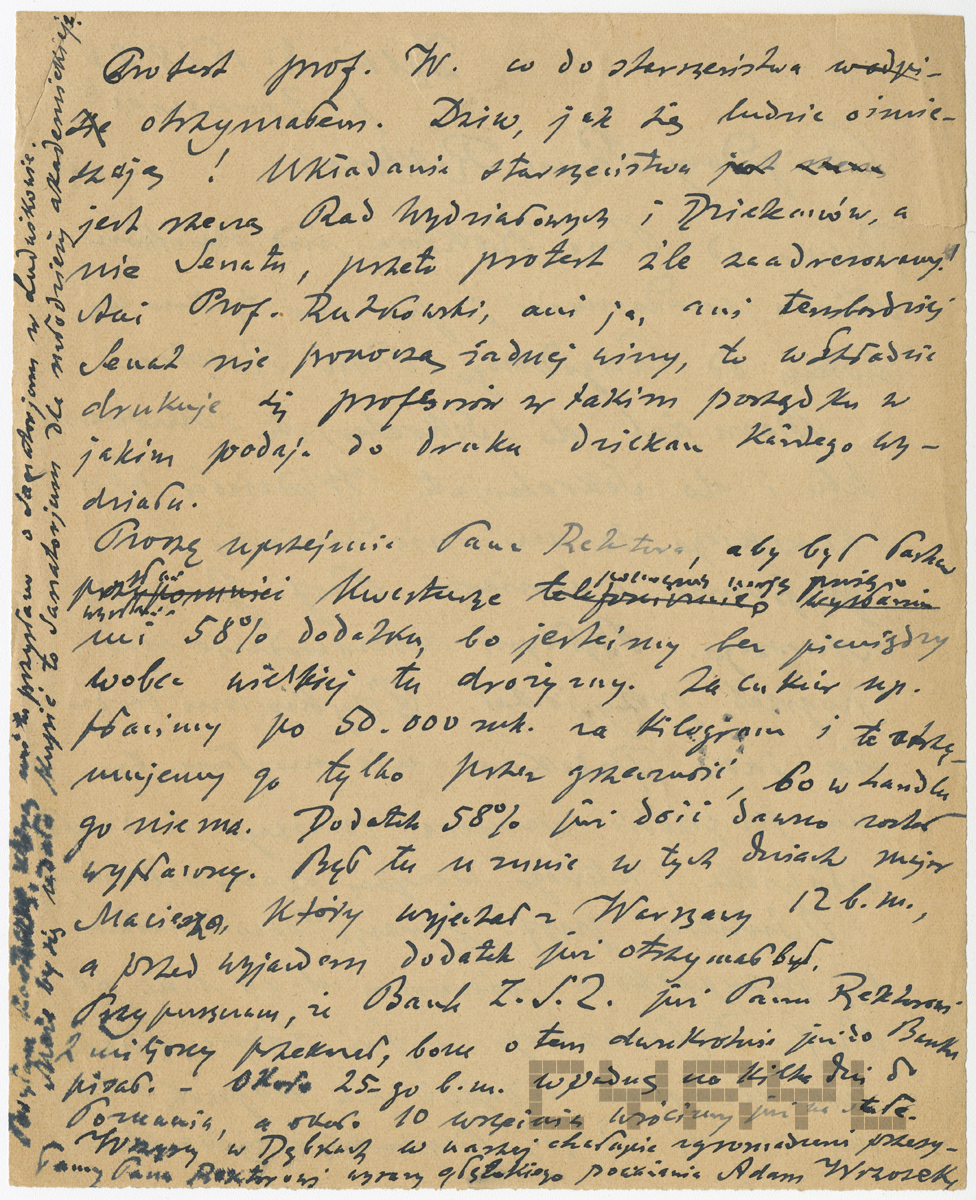 Protest prof. W. co do starszeństwa
otrzymałem. Dziw, jak się ludzie ośmie-
szają! Układanie starszeństwa jest
jest rzeczą Rad Wydziałowych i Dziekanów, a
nie Senatu, przeto protest źle zaadresowany!
Ani Prof. Rutkowski, ani ja, ani tembardziej
Senat nie ponoszą żadnej winy, to w składzie
drukuje się profesorów w takim porządku w
jakim podaje do druku dziekan każdego wy-
działu.
Proszę uprzejmie Pana Rektora, aby był łaskaw
Kwesturze
mi 58% dodatku, bo jesteśmy bez pieniędzy
wobec wielkiej tu drożyzny. Za cukier np.
płacimy po 50.000 mk. za kilogram i to otrzy-
mujemy go tylko przez grzeczność, bo w handlu
go niema. Dodatek 58% już dość dawno został
wypłacony. Był tu u mnie w tych dniach major
Maciesza, który wyjechał z Warszawy 12 b.m.,
a przed wyjazdem dodatek już otrzymał był.
Przypuszczam, że Bank Z.S.Z. już Panu Rektorowi
2 miljony przekazał, bom o tem dwukrotnie już do Banku
pisał. – Około 25-go b.m. wpadnę na kilka dni do
Poznania, a około 10 września wrócimy już na stałe.
Wszyscy w Dębkach w naszej chałupie zgromadzeni przesy-
łamy Panu Rektorowi wyrazy głębokiego poważania Adam Wrzosek
o Sanatorjum w Ludwikowie.
Może by się udało kupić to Sanatorjum dla młodzieży akademickiej?